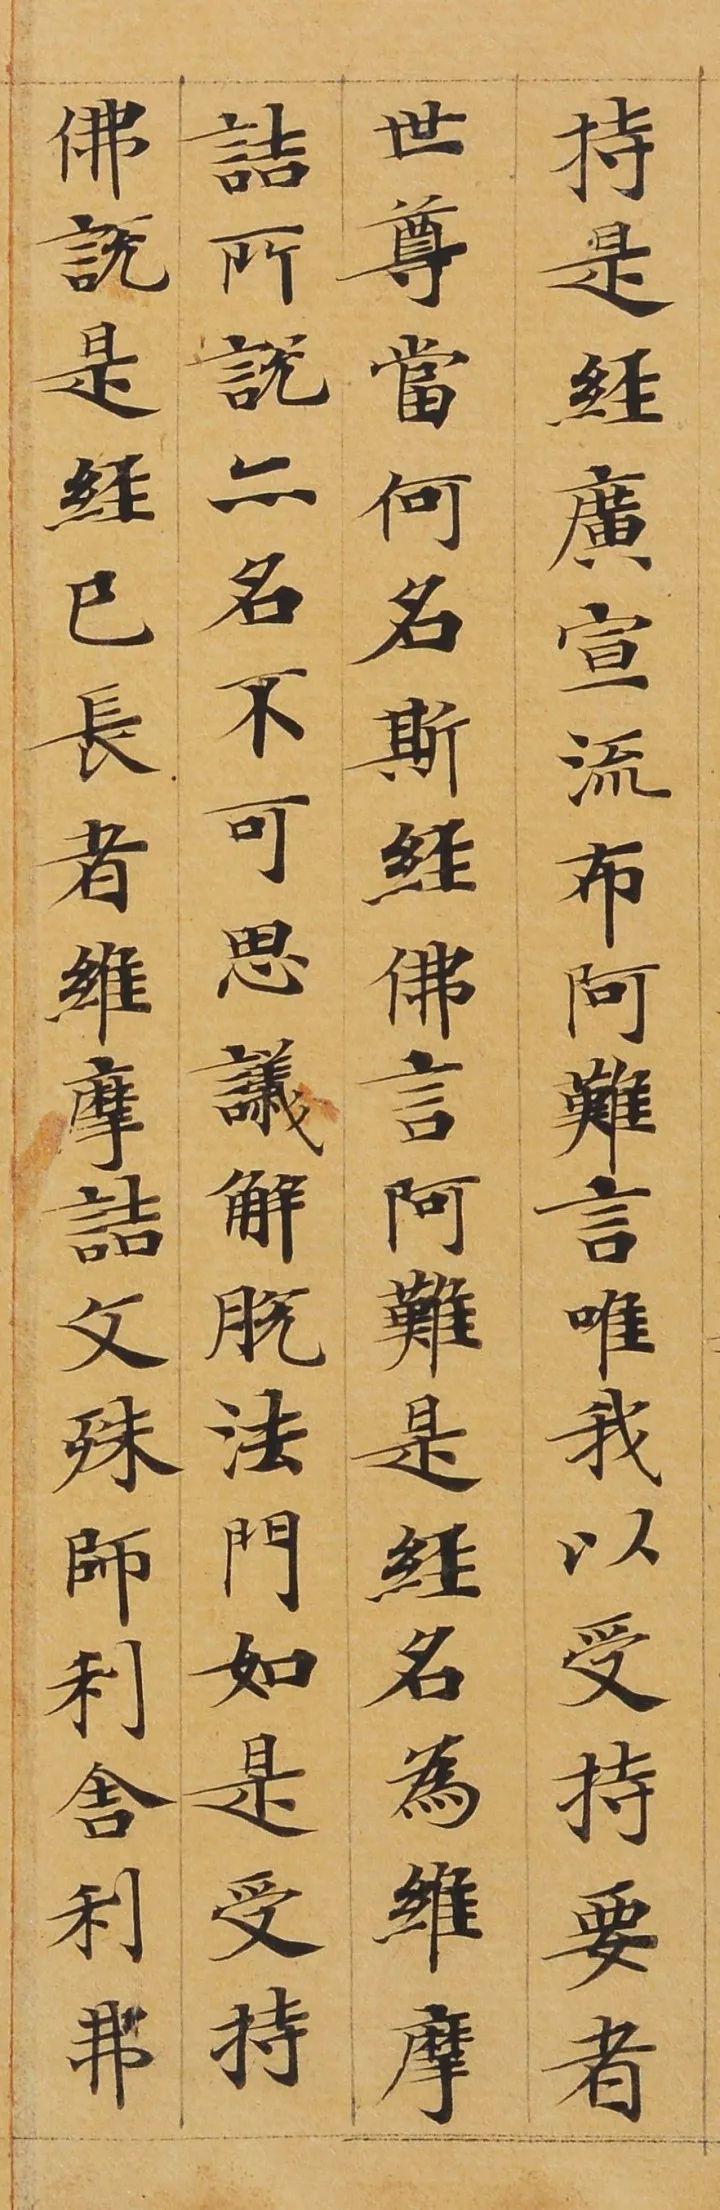 持是經廣宣流布阿難言唯我以受持要者
世尊當何名斯經佛言阿難是經名為維摩
詰所說亦名不可思議解脫法門如是受持
佛說是經已長者維摩詰文殊師利舍利弗